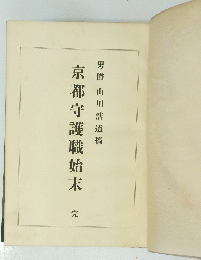 男爵 山川浩遺稿
京都守護職始末
完